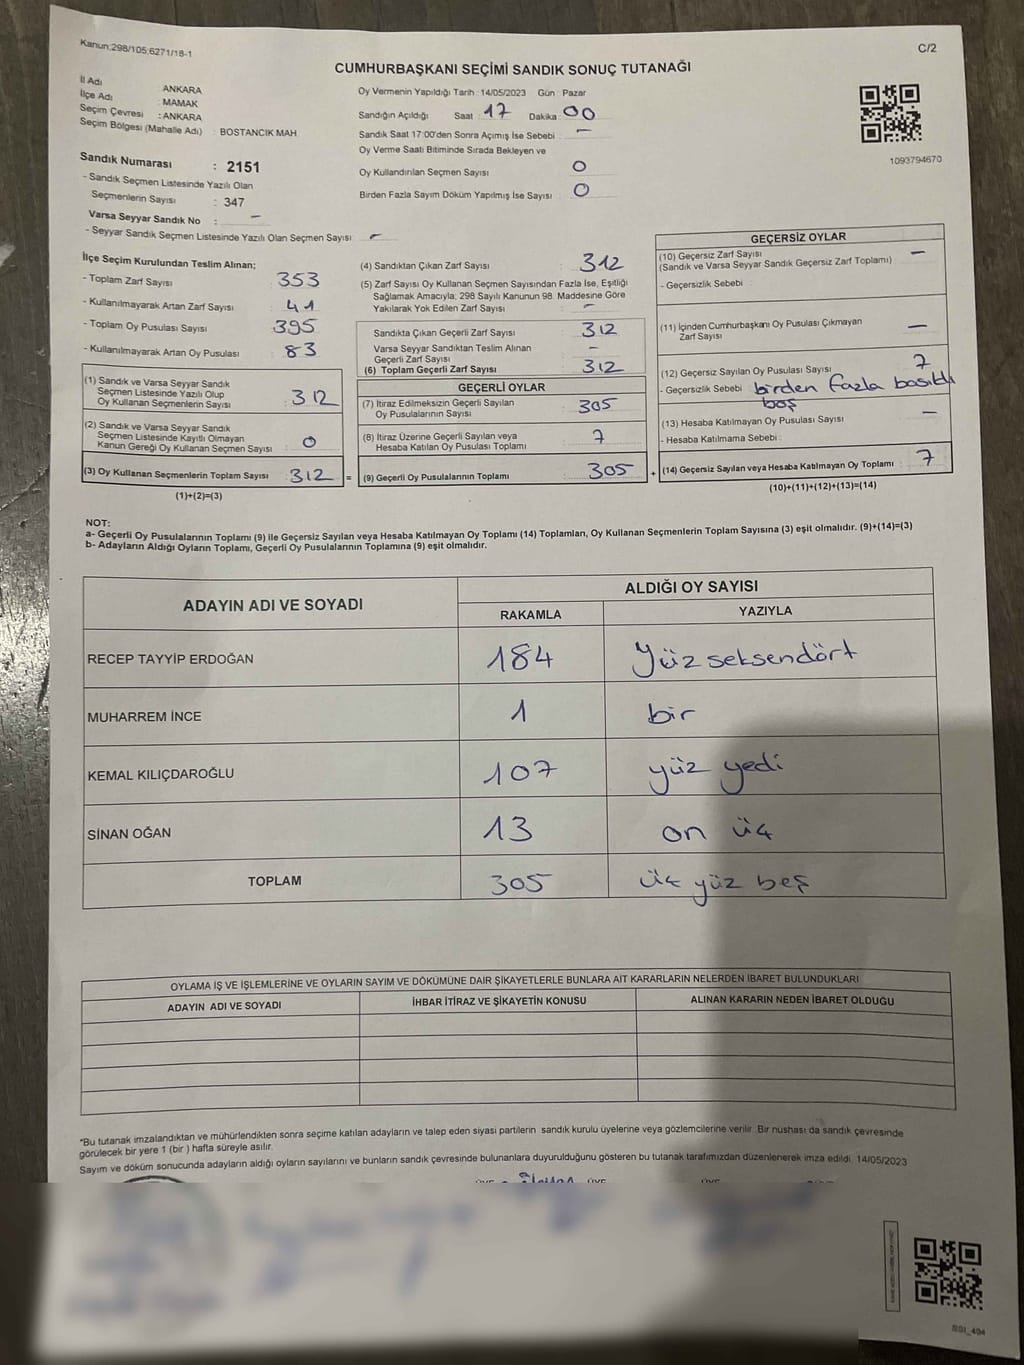 Kanun;298/105;6271/18-1
C/2
CUMHURBAŞKANI SEÇİMİ SANDIK SONUÇ TUTANAĞI
İl Adı : ANKARA
İlçe Adı : MAMAK
Seçim Çevresi : ANKARA
Seçim Bölgesi (Mahalle Adı) : BOSTANCIK MAH
Sandık Numarası : 2151
- Sandık Seçmen Listesinde Yazılı Olan
Seçmenlerin Sayısı : 347
Varsa Seyyar Sandık No : -
- Seyyar Sandık Seçmen Listesinde Yazılı Olan Seçmen Sayısı: -
Oy Vermenin Yapıldığı Tarih : 14/05/2023 Gün : Pazar
Sandığın Açıldığı Saat : 17 Dakika : 00
Sandık Saat 17:00'den Sonra Açımış İse Sebebi : -
Oy Verme Saati Bitiminde Sırada Bekleyen ve
Oy Kullandırılan Seçmen Sayısı : 0
Birden Fazla Sayım Döküm Yapılmış İse Sayısı : 0
1093794670
İlçe Seçim Kurulundan Teslim Alınan;
- Toplam Zarf Sayısı : 353
- Kullanılmayarak Artan Zarf Sayısı : 41
- Toplam Oy Pusulası Sayısı : 395
- Kullanılmayarak Artan Oy Pusulası : 83
(1) Sandık ve Varsa Seyyar Sandık
Seçmen Listesinde Yazılı Olup
Oy Kullanan Seçmenlerin Sayısı : 312
(2) Sandık ve Varsa Seyyar Sandık
Seçmen Listesinde Kayıtlı Olmayan
Kanun Gereği Oy Kullanan Seçmen Sayısı : 0
(3) Oy Kullanan Seçmenlerin Toplam Sayısı : 312 =
(1)+(2)=(3)
(4) Sandıktan Çıkan Zarf Sayısı : 312
(5) Zarf Sayısı Oy Kullanan Seçmen Sayısından Fazla İse, Eşitliği
Sağlamak Amacıyla; 298 Sayılı Kanunun 98. Maddesine Göre
Yakılarak Yok Edilen Zarf Sayısı : -
Sandıkta Çıkan Geçerli Zarf Sayısı : 312
Varsa Seyyar Sandıktan Teslim Alınan
Geçerli Zarf Sayısı : -
(6) Toplam Geçerli Zarf Sayısı : 312
GEÇERLİ OYLAR
(7) İtiraz Edilmeksizin Geçerli Sayılan
Oy Pusulalarının Sayısı : 305
(8) İtiraz Üzerine Geçerli Sayılan veya
Hesaba Katılan Oy Pusulası Toplamı : 7
(9) Geçerli Oy Pusulalarının Toplamı : 305 +
GEÇERSİZ OYLAR
(10) Geçersiz Zarf Sayısı
(Sandık ve Varsa Seyyar Sandık Geçersiz Zarf Toplamı) : -
- Geçersizlik Sebebi :
(11) İçinden Cumhurbaşkanı Oy Pusulası Çıkmayan
Zarf Sayısı : -
(12) Geçersiz Sayılan Oy Pusulası Sayısı : 7
- Geçersizlik Sebebi : birden fazla basıldı
boş
(13) Hesaba Katılmayan Oy Pusulası Sayısı : -
- Hesaba Katılmama Sebebi :
(14) Geçersiz Sayılan veya Hesaba Katılmayan Oy Toplamı : 7
(10)+(11)+(12)+(13)=(14)
NOT:
a- Geçerli Oy Pusulalarının Toplamı (9) ile Geçersiz Sayılan veya Hesaba Katılmayan Oy Toplamı (14) Toplamları, Oy Kullanan Seçmenlerin Toplam Sayısına (3) eşit olmalıdır. (9)+(14)=(3)
b- Adayların Aldığı Oyların Toplamı, Geçerli Oy Pusulalarının Toplamına (9) eşit olmalıdır.
ADAYIN ADI VE SOYADI ALDIĞI OY SAYISI
RAKAMLA YAZIYLA
RECEP TAYYİP ERDOĞAN 184 Yüzseksendört
MUHARREM İNCE 1 bir
KEMAL KILIÇDAROĞLU 107 yüz yedi
SİNAN OĞAN 13 on üç
TOPLAM 305 üç yüz beş
OYLAMA İŞ VE İŞLEMLERİNE VE OYLARIN SAYIM VE DÖKÜMÜNE DAİR ŞİKAYETLERLE BUNLARA AİT KARARLARIN NELERDEN İBARET BULUNDUKLARI
ADAYIN ADI VE SOYADI İHBAR İTİRAZ VE ŞİKAYETİN KONUSU ALINAN KARARIN NEDEN İBARET OLDUĞU
*Bu tutanak imzalandıktan ve mühürlendikten sonra seçime katılan adayların ve talep eden siyasi partilerin sandık kurulu üyelerine veya gözlemcilerine verilir. Bir nüshası da sandık çevresinde
görülecek bir yere 1 (bir ) hafta süreyle asılır.
Sayım ve döküm sonucunda adayların aldığı oyların sayılarını ve bunların sandık çevresinde bulunanlara duyurulduğunu gösteren bu tutanak tarafımızdan düzenlenerek imza edildi. 14/05/2023